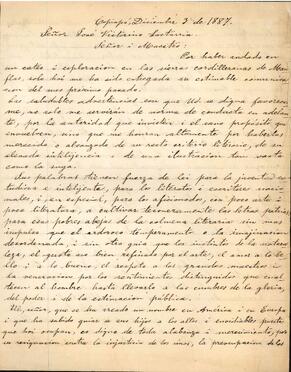 Copiapó, Diciembre 3 de 1887.
Señor José Victorino Lastarria
Señor i Maestro:
Por haber andado en
un cateo i esploracion en las sierras cordilleranas de Manflas,
solo hoi me ha sido entregada su estimable comunica-
cion del mes próximo pasado.
Las saludables advertencias con que Ud se digna favorecer-
me, no solo me servirán de norma de conducta en adelan-
te, por la autoridad que invisten i el sano propósito que
envuelven, sino que me honran altamente por haberlas
merecido o alcanzado de su recto criterio literario, de su
elevada intelijencia i de una ilustracion tan vasta
como la suya.
Sus palabras tienen fuerza de lei para la juventud es-
tudiosa e intelijente, para los literatos i escritores nacio-
nales, i, en especial, para los aficionados, con poco arte i
poca literatura, a cultivar las letras patrias,
para esos pobres obreros de la colmena literaria sin mas
impulso que el ardoroso temperamento o la imajinacion
desordenada, i sin otra guia que los instintos de la natura-
leza, el gusto no bien refinado por el arte, el amor a lo be-
llo i a lo bueno, el respeto a los grandes maestros i
la veneracion por los
al hombre hasta llevarlo a las cumbres de la gloria,
del poder i de la estimacion pública.
Ud, señor, que se ha creado un nombre en América i en Europa
i que ha sabido guiar a sus hijos a los altos i envidiables puestos
que hoi ocupan, es digno de toda alabanza i merecimiento, por
su resignacion entre la injusticia de los unos, la presuncion de los